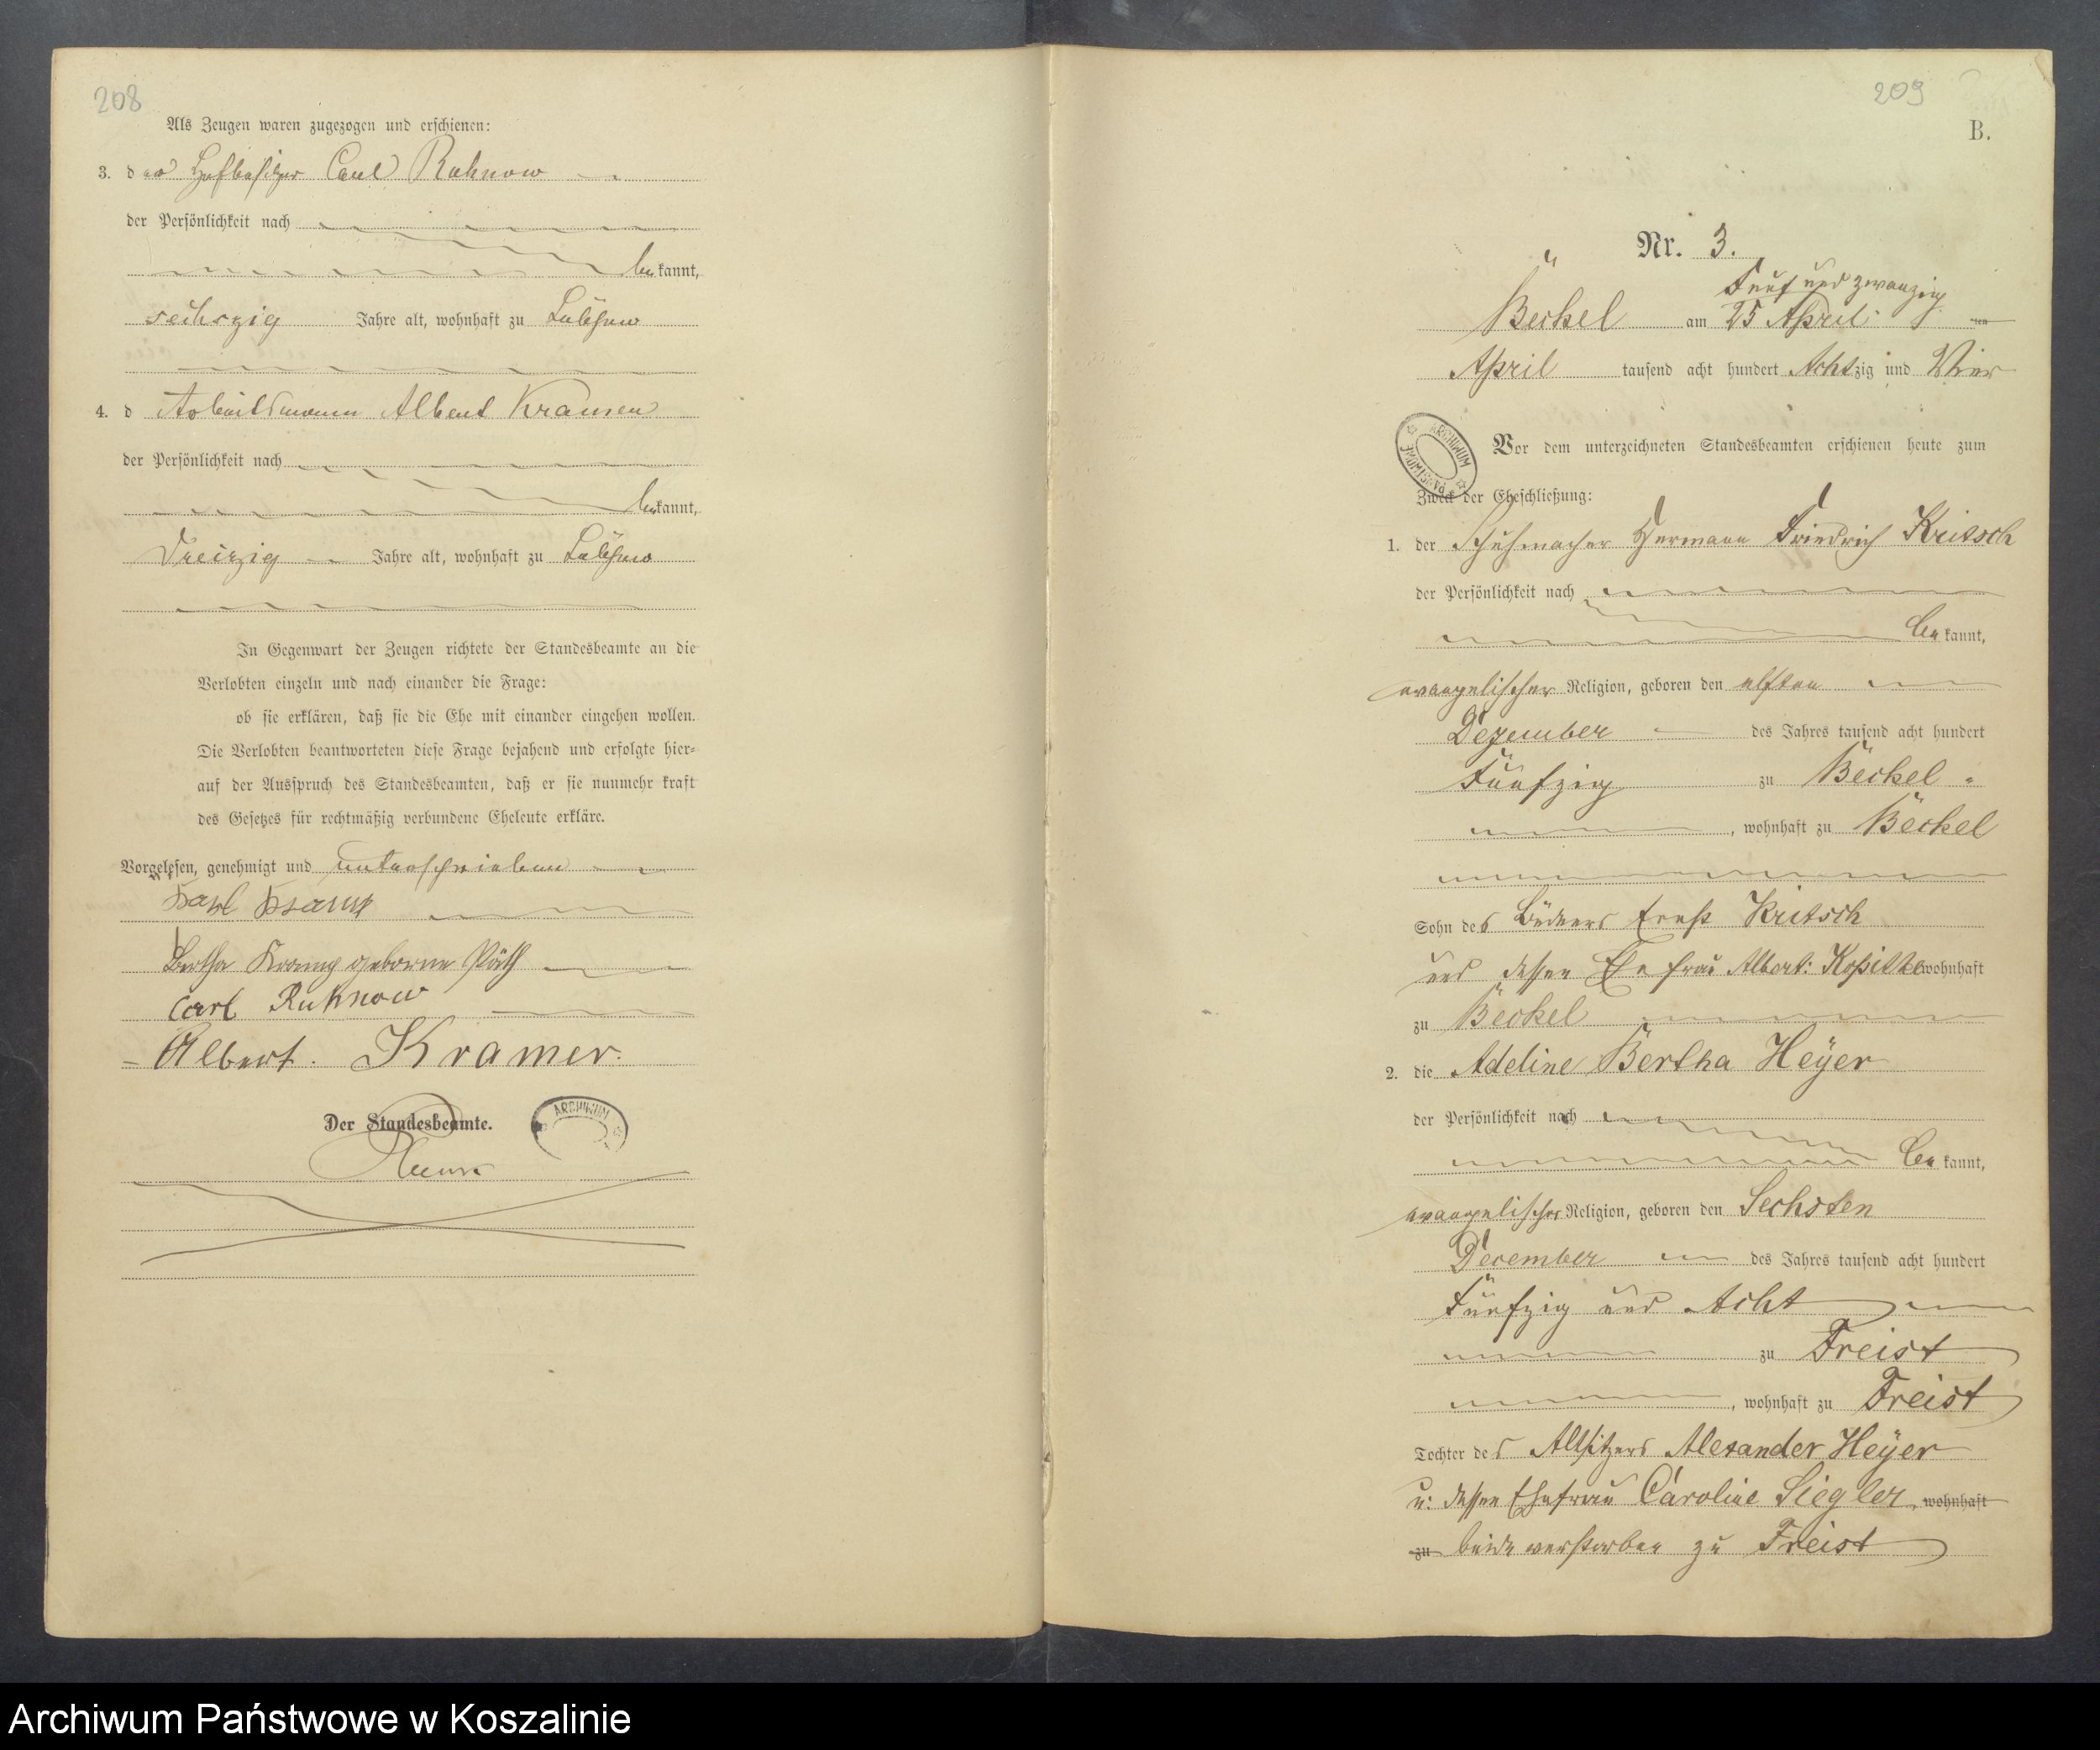 208
Als Zeugen waren zugezogen und erschienen:
3. der Hofbesitzer Carl Ruhnow
der Persönlichkeit nach
bekannt,
sechszig Jahre alt, wohnhaft zu Lübzow
4. d Arbeitsmann Albert Kramer
der Persönlichkeit nach
bekannt,
Dreizig Jahre alt, wohnhaft zu Lübzow
In Gegenwart der Zeugen richtete der Standesbeamte an die
Verlobten einzeln und nach einander die Frage:
ob sie erklären, daß sie die Ehe mit einander eingehen wollen.
Die Verlobten beantworteten diese Frage bejahend und erfolgte hier-
auf der Ausspruch des Standesbeamten, daß er sie nunmehr kraft
des Gesetzes für rechtmäßig verbundene Eheleute erkläre.
Vorgelesen, genehmigt und unterschrieben
Karl
Bertha geborne Päth
Carl Ruhnow
Albert. Kramer.
Der Standesbeamte.
ARCHIWUM
209
B.
Nr. 3.
Fünf und zwanzig
Beckel am 25 April
April tausend acht hundert Achtzig und Vier
ARCHIWUM PAŃSTWOWE
Vor dem unterzeichneten Standesbeamten erschienen heute zum
Zweck der Eheschließung:
1. der Schuhmacher Hermann Friedrich Kritsch
der Persönlichkeit nach
bekannt,
evangelischer Religion, geboren den elften
Dezember des Jahres tausend acht hundert
Fünfzig zu Beckel
, wohnhaft zu Beckel
Sohn des Ernst Kritsch
und dessen Ehefrau Albert: Kopittke wohnhaft
zu Beckel
2. die Adeline Bertha Heÿer
der Persönlichkeit nach
bekannt,
evangelischer Religion, geboren den Sechsten
December des Jahres tausend acht hundert
Fünfzig und Acht
zu Freist
, wohnhaft zu Freist
Tochter des Altsitzers Alexander Heÿer
u: dessen Ehefrau Caroline Siegler, wohnhaft
zu beide verstorben zu Freist
Archiwum Państwowe w Koszalinie